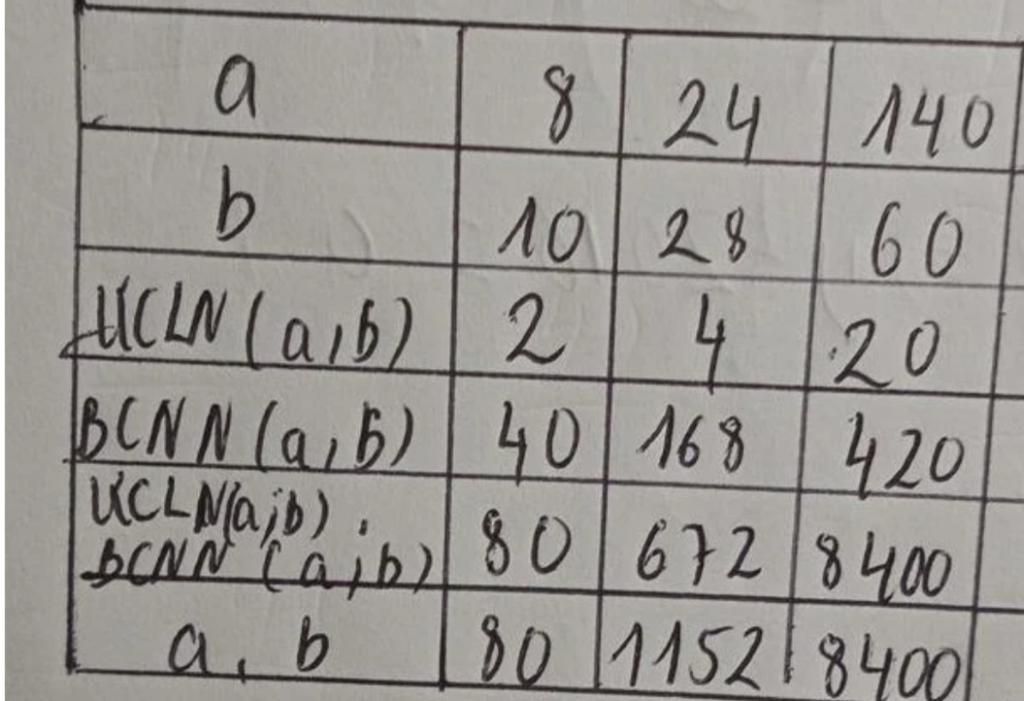 a 8 24 140
b 10 28 60
ƯCLN(a,b) 2 4 20
BCNN(a,b) 40 168 420
ƯCLN(a;b).
BCNN(a;b) 80 672 8400
a.b 80 1152 8400